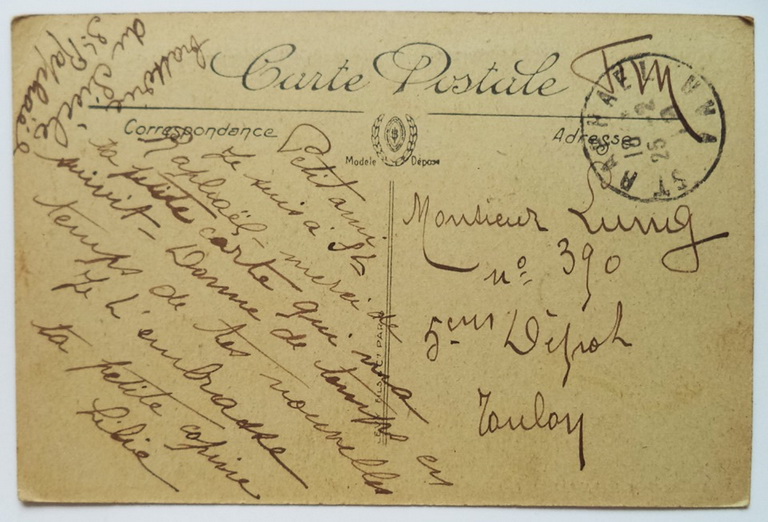 Carte Postale
Correspondance
Adresse
Modèle Déposé
Fm
ST RAPHAEL
18
25
Petit ami
Je suis à St
Raphaël, merci de
ta petite carte qui m'a
suivit - Donne de temps en
temps de tes nouvelles
Je t'embrasse
ta petite copine
Lilie
du Siècle
St Raphaël
Monsieur Lung
n° 390
5ème Dépot
Toulon